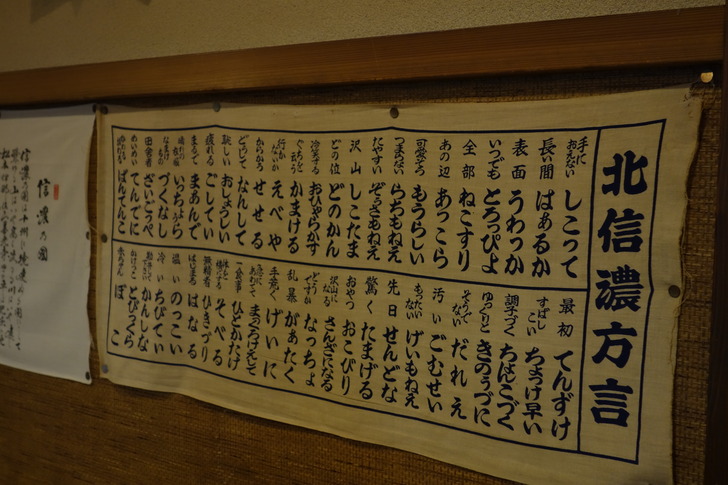 北信濃方言
手におえない しこって
長い間 はあるか
表面 うわっか
いつでも とろっぴょ
全部 ねこすり
あの辺 あっこら
可愛そう もうらしい
つまらない らちもねえ
たやすい ぞうさもねえ
沢山 しこたま
どの位 どのかん
冷笑する おひゃらかす
ぐちを言う かまける
行かないか えべや
からかう せせる
どうして なんして
欲しい おしょうしい
疲れる ごしてい
まるで まあんで
いっちょうら
なまけもの づくなし
田舎者 ざいごっぺ
めいめい てんでに
ばんてんこ
最初 てんずけ
すばしこい ちょっけ早い
調子づく ちょんこづく
ゆっくりと きのうづに
そうでない だれえ
汚い ごむせい
もったいない げいもねえ
先日 せんどな
驚く たまげる
おやつ おこびり
沢山になる さんざになる
どうですか なっちょ
乱暴 があたく
手荒く げいに
急にあわてて まっくろけえして
一食事 ひとかたけ
そべる
無精者 ひきづり
はじまる はなる
温い のっこい
冷い ちびてい
かんしな
かけっこ とびっくら
赤ちゃん ぼこ
信濃の國